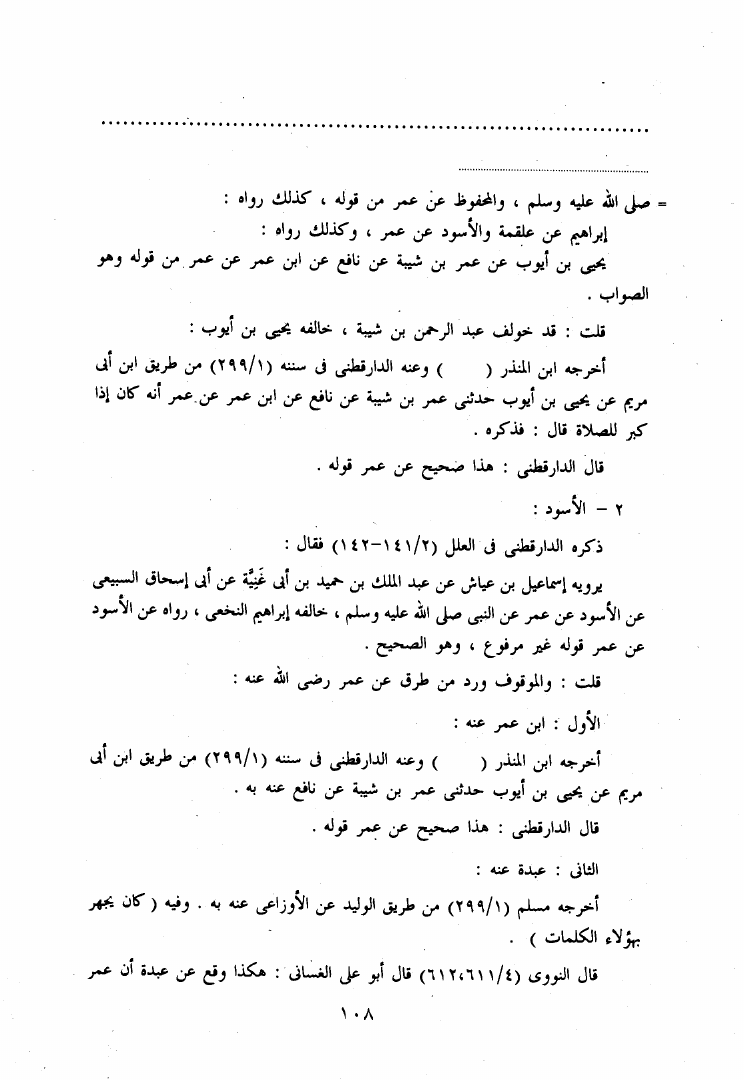 = صلى الله عليه وسلم ، والمحفوظ عن عمر من قوله ، كذلك رواه :
إبراهيم عن علقمة والأسود عن عمر ، وكذلك رواه :
يحيى بن أيوب عن عمر بن شيبة عن نافع عن ابن عمر عن عمر من قوله وهو
الصواب .
قلت : قد خولف عبد الرحمن بن شيبة ، خالفه يحيى بن أيوب :
أخرجه ابن المنذر (      ) وعنه الدارقطنى فى سننه (٢٩٩/١) من طريق ابن أبى
مريم عن يحيى بن أيوب حدثنى عمر بن شيبة عن نافع عن ابن عمر عن عمر أنه كان إذا
كبر للصلاة قال : فذكره .
قال الدارقطنى : هذا صحيح عن عمر قوله .
٢ – الأسود :
ذكره الدارقطنى فى العلل (١٤١/٢–١٤٢) فقال :
يرويه إسماعيل بن عياش عن عبد الملك بن حميد بن أبى غَنِيَّة عن أبى إسحاق السبيعى
عن الأسود عن عمر عن النبى صلى الله عليه وسلم ، خالفه إبراهيم النخعى ، رواه عن الأسود
عن عمر قوله غير مرفوع ، وهو الصحيح .
قلت : والموقوف ورد من طرق عن عمر رضى الله عنه :
الأول : ابن عمر عنه :
أخرجه ابن المنذر (      ) وعنه الدارقطنى فى سننه (٢٩٩/١) من طريق ابن أبى
مريم عن يحيى بن أيوب حدثنى عمر بن شيبة عن نافع عنه به .
قال الدارقطنى : هذا صحيح عن عمر قوله .
الثانى : عبدة عنه :
أخرجه مسلم (٢٩٩/١) من طريق الوليد عن الأوزاعى عنه به . وفيه ( كان يجهر
بهؤلاء الكلمات ) .
قال النووى (٦١٢،٦١١/٤) قال أبو على الغسانى : هكذا وقع عن عبدة أن عمر
١٠٨